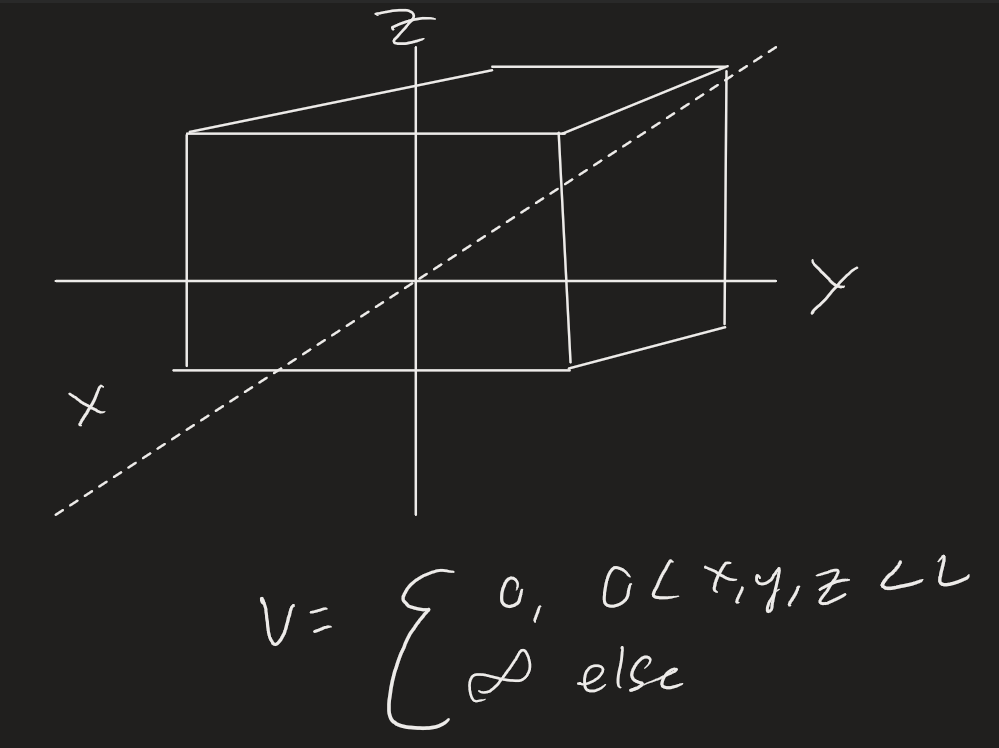 Z
Y
X
V = { 0, 0 < x, y, z < L
∞ else